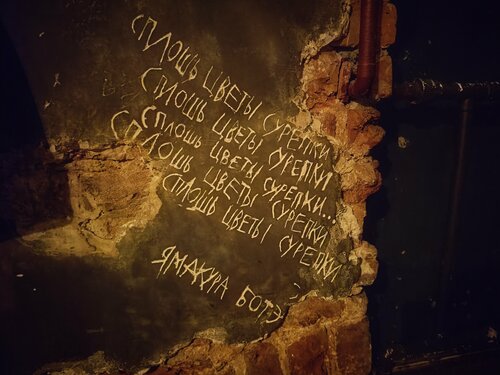 СПЛОШЬ ЦВЕТЫ СУРЕПКИ
СПЛОШЬ ЦВЕТЫ СУРЕПКИ
СПЛОШЬ ЦВЕТЫ СУРЕПКИ...
СПЛОШЬ ЦВЕТЫ СУРЕПКИ
СПЛОШЬ ЦВЕТЫ СУРЕПКИ
ЯМАКУРА БОТЭ